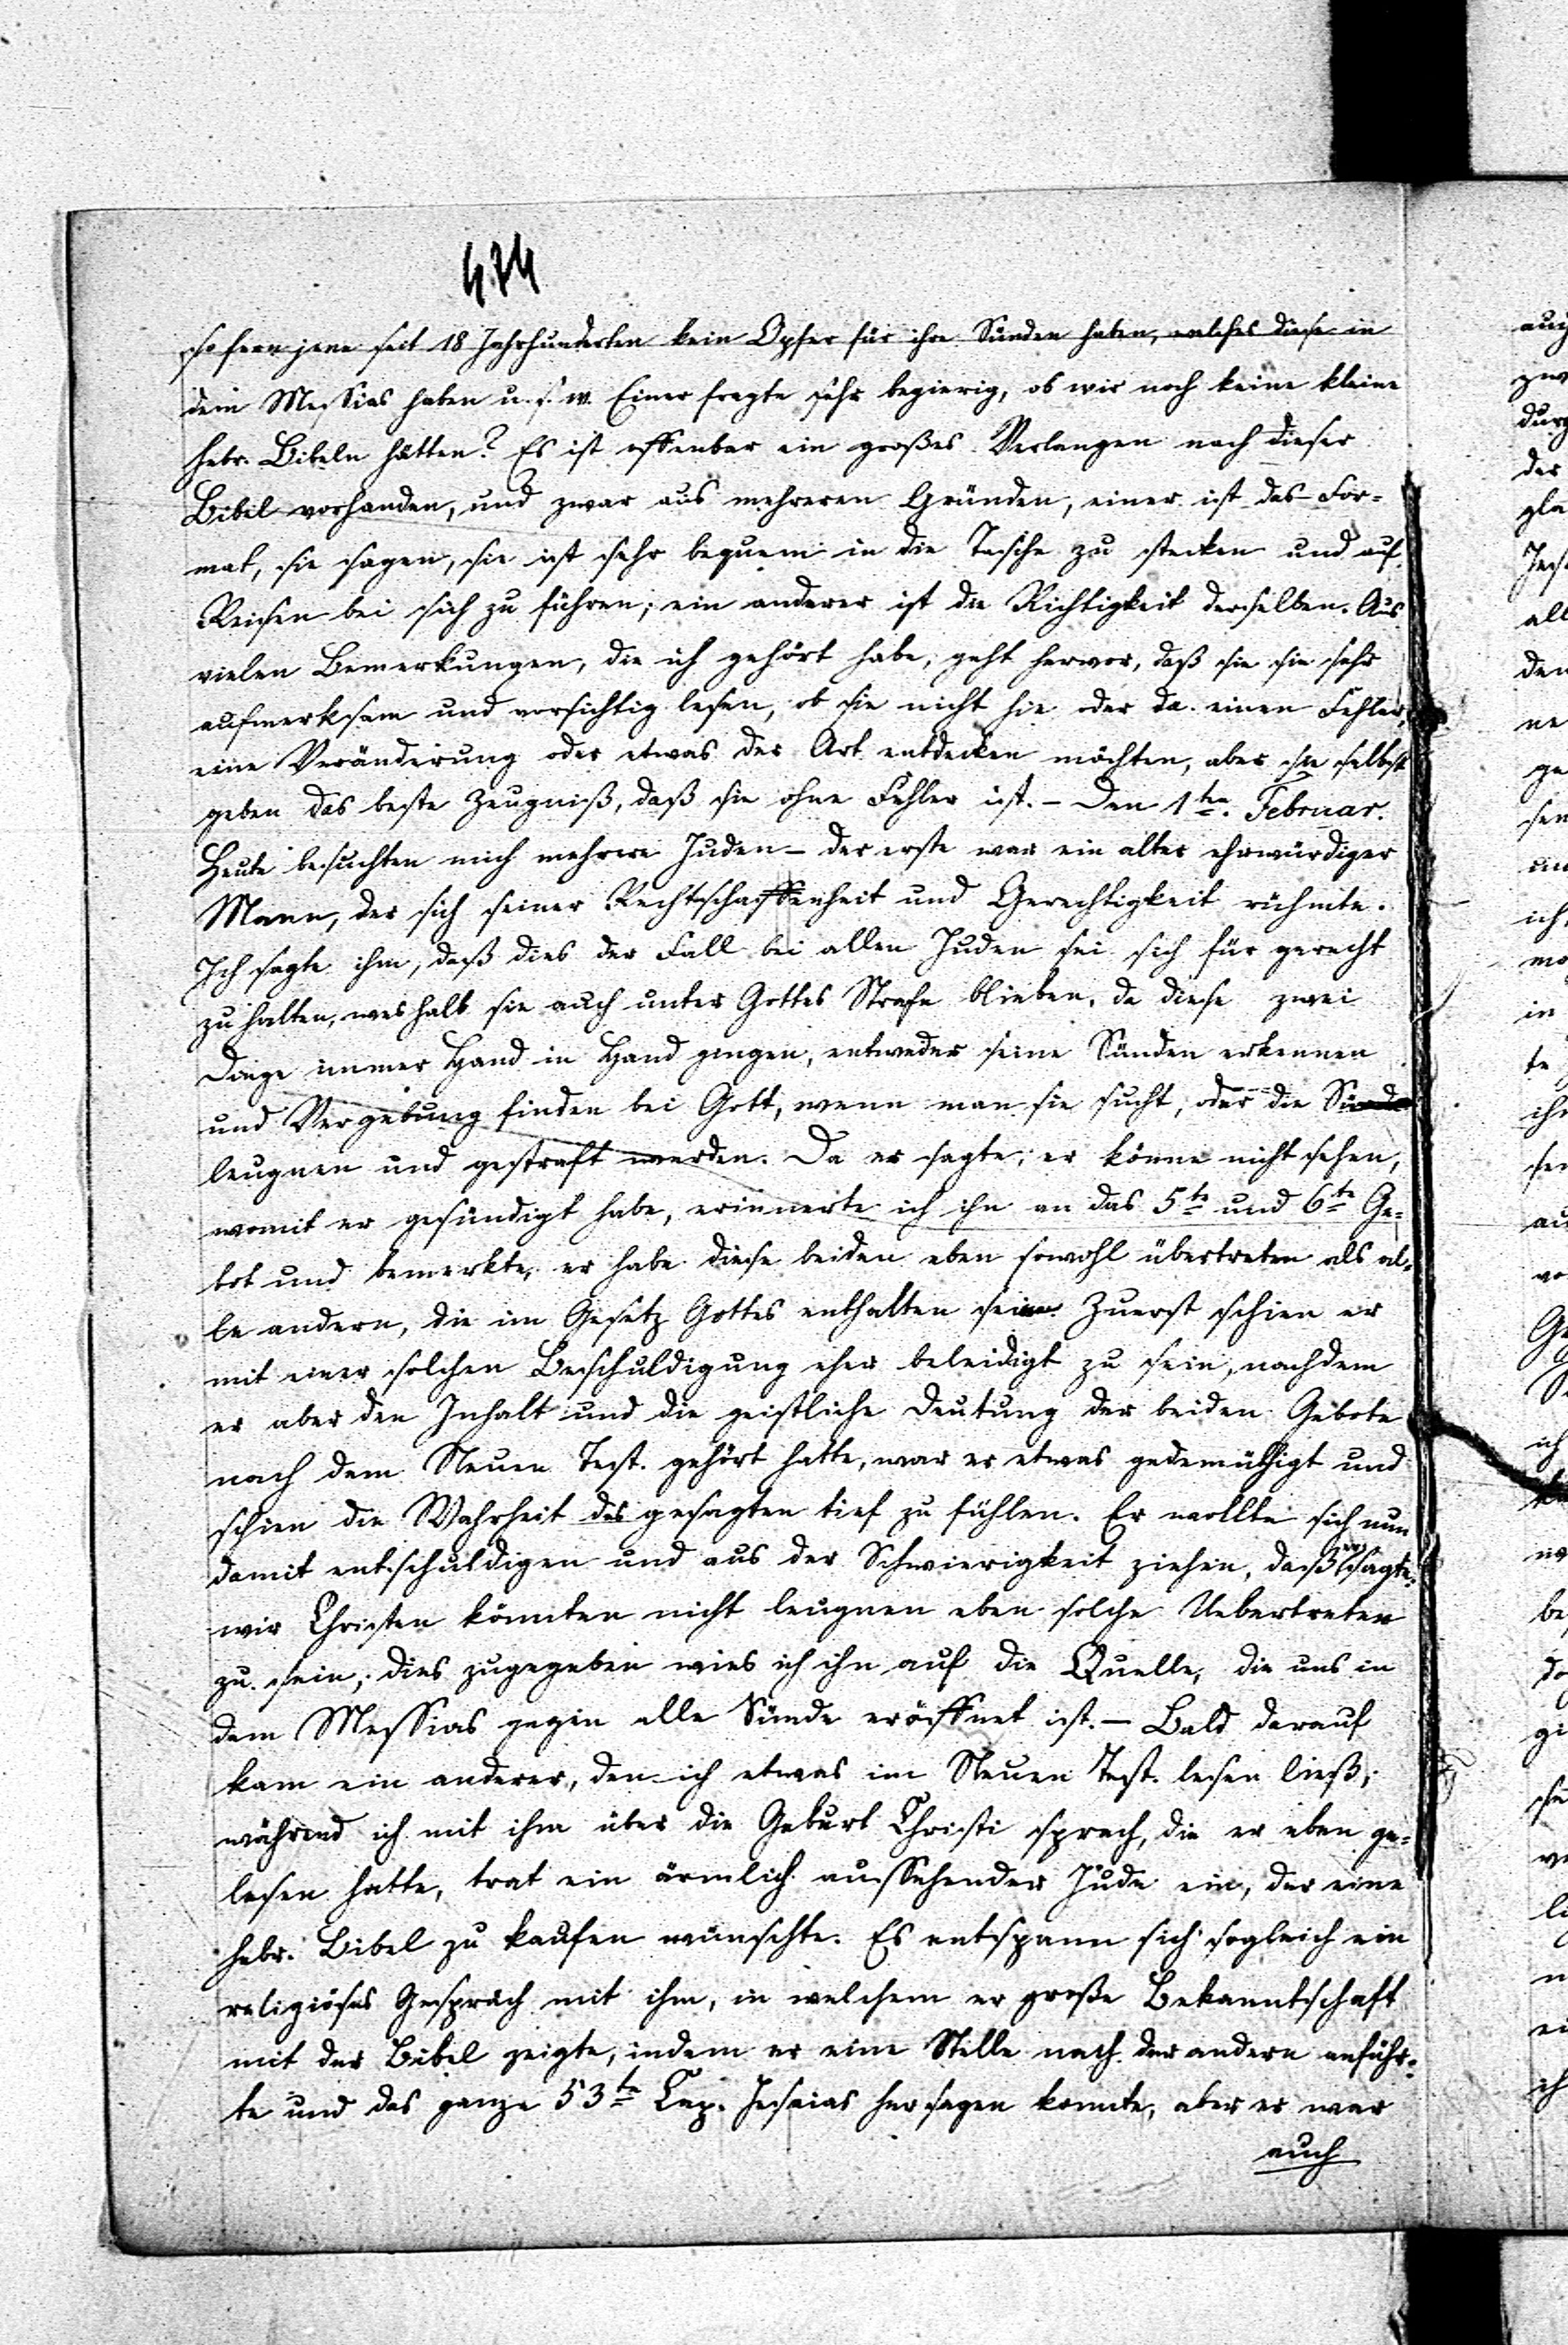 474
so fern jene seit 18 Jahrhunderten kein Opfer für ihre Sünden haben, welches diese in
dem Messias haben u. s. w. Einer fragte sehr begierig, ob wir noch keine kleine
hebr. Bibeln hätten? Es ist offenbar ein großes Verlangen nach dieser
Bibel vorhanden, und zwar aus mehreren Gründen, einer ist das For-
mat, sie sagen, sie ist sehr bequem in die Tasche zu stecken und auf
Reisen bei sich zu führen; ein anderer ist die Richtigkeit derselben. Aus
vielen Bemerkungen, die ich gehört habe, geht hervor, daß sie sie sehr
aufmerksam und vorsichtig lesen, ob sie nicht hie oder da einen Fehler,
eine Veränderung oder etwas der Art entdecken möchten, aber sie selbst
geben das beste Zeugniß, daß sie ohne Fehler ist. – Den 1ten. Februar.
Heute besuchten mich mehrere Juden – der erste war ein alter ehrwürdiger
Mann, der sich seiner Rechtschaffenheit und Gerechtigkeit rühmte.
Ich sagte ihm, daß dies der Fall bei allen Juden sei sich für gerecht
zu halten, weshalb sie auch unter Gottes Strafe blieben, da diese zwei
Dinge immer Hand in Hand gingen, entweder seine Sünden erkennen
und Vergebung finden bei Gott, wenn man sie sucht, oder die Sünde
leugnen und gestraft werden. Da er sagte, er könne nicht sehen,
womit er gesündigt habe, erinnerte ich ihn an das 5te und 6te Ge-
bot und bemerkte, er habe diese beiden eben sowohl übertreten als al-
le andern, die im Gesetz Gottes enthalten seien. Zuerst schien er
mit einer solchen Beschuldigung eher beleidigt zu sein, nachdem
er aber den Inhalt und die geistliche Deutung der beiden Gebote
nach dem Neuen Test. gehört hatte, war er etwas gedemüthigt und
schien die Wahrheit des gesagten tief zu fühlen. Er wollte sich nun
damit entschuldigen und aus der Schwierigkeit ziehen, daß er sagte:
wir Christen könnten nicht leugnen eben solche Uebertreter
zu sein; dies zugegeben wies ich ihn auf die Quelle, die uns in
dem Messias gegen alle Sünde eröffnet ist. – Bald darauf
kam ein anderer, den ich etwas im Neuen Test. lesen ließ;
während ich mit ihm über die Geburt Christi sprach, die er eben ge-
lesen hatte, trat ein ärmlich aussehender Jude ein, der eine
hebr. Bibel zu kaufen wünschte. Es entspann sich sogleich ein
religiöses Gespräch mit ihm, in welchem er große Bekanntschaft
mit der Bibel zeigte, indem er eine Stelle nach der andern anführ-
te und das ganze 53te Cap. Jesaias hersagen konnte, aber er war
auch